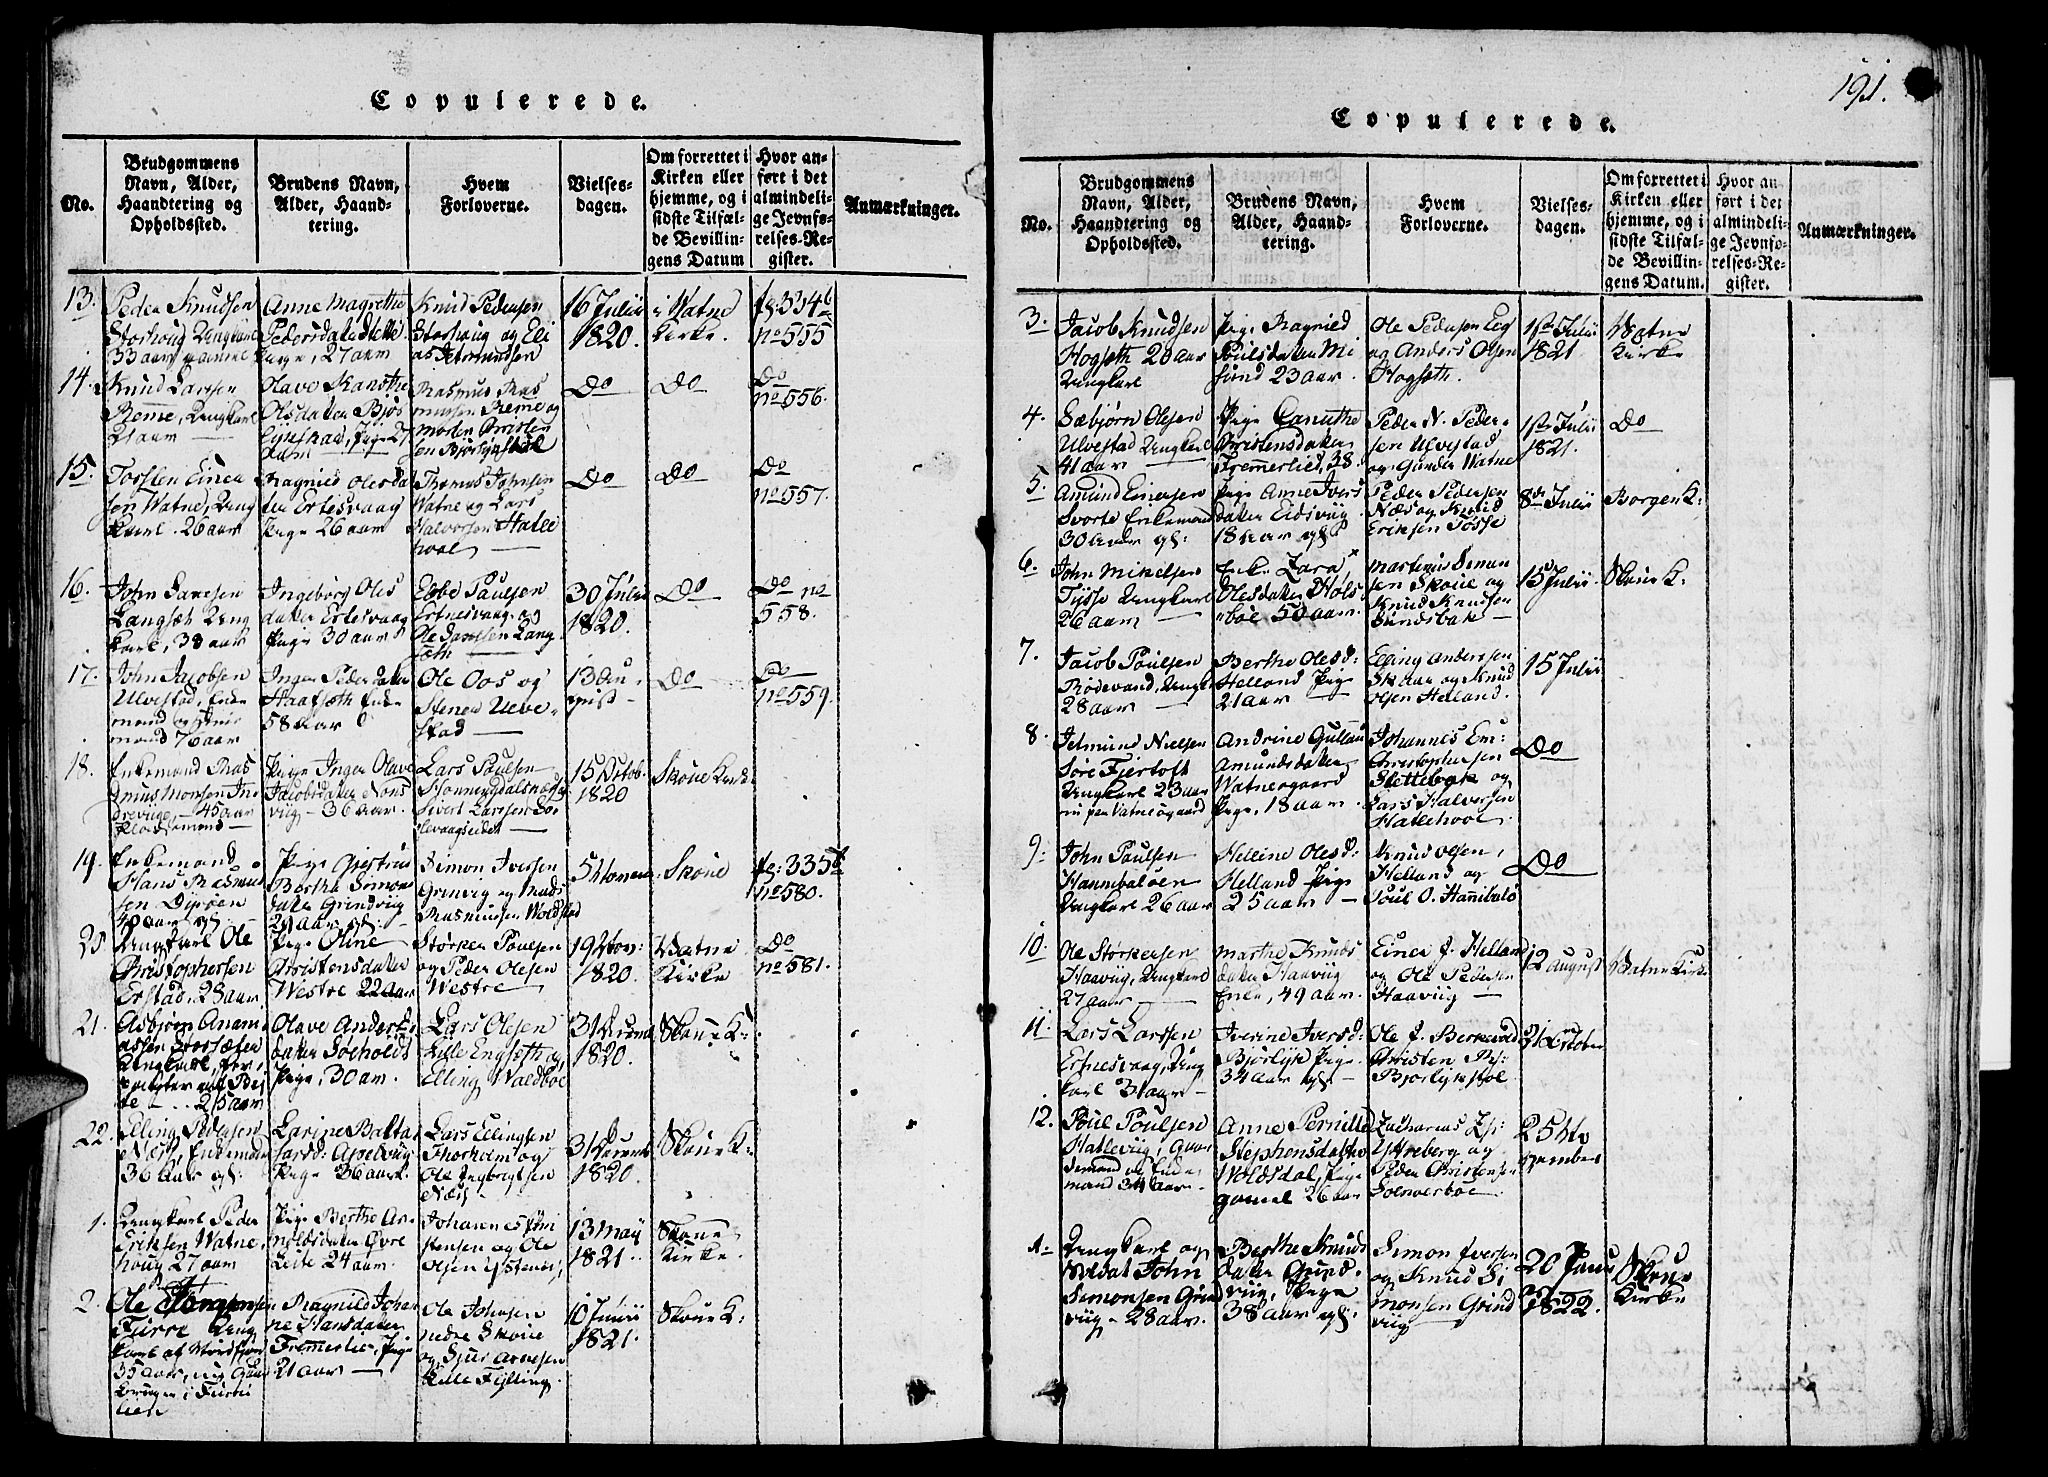 191.
Copulerede.
No.
Brudgommens
Navn, Alder,
Haandtering og
Opholdssted.
Brudens Navn,
Alder, Haand-
tering.
Hvem
Forloverne.
Vielses-
dagen.
Om forrettet i
Kirken eller
hjemme, og i
sidste Tilfæl-
de Bevillin-
gens Datum
Hvor an-
ført i det
almindeli-
ge Jevnfø-
relses-Re-
gister.
Anmærkninger.
13.
Peder Knudsen
Storhoug Ungkarl
33 aar gammel
Anne Magrethe
Pedersdatter
Pige, 27 aar
Knud Pedersen
Storhoug og Eli
as Jetmundsen
16 Julii
1820.
i Watne
Kirke.
fg: 334
No 555
14.
Knud Larsen
Reme, Ungkarl
21 aar
Olave
Olsdatter Bjør
Pige 27
aar
Rasmus Ras
mussen Reme og
Morten Christen
sen
Do
Do
Do
No 556.
15.
Torsten Einer
sen Watne, Ung
karl. 26 aar
Ragnied Olesda
ter Ertesvaag
Pige 26 aar
Thomas Johnsen
Watne og Lars
Halvorsen Hatle
hoel
Do
Do
Do
No 557.
16.
John
Langset Ung
karl, 38 aar
Ingeborg Oles
datter Ertesvaag
Pige 30 aar
Ebbe Poulsen
Ertnesvaag og
Ole Lang
sæth
30 Julii
1820.
Do
Do No
558.
17.
John Jacobsen
Ulvestad, Enke
mand og
mand 76 aar
Inger Pedersdatter
Haafsæth Enke
58 aar
Ole Oos og
Stener Ulve-
stad
13 Au-
gust
Do
Do
No 559.
18.
Enkemand Ras
mus Monsen
45 aar
Pige Inger Olave
Jacobsdatter Nons
viig 36 aar
Lars Poulsen
Sivert Larssen
15 Octob.
1820
Skoue Kirke
19.
Enkemand
Hans Rasmus
sen Dyrøen
40 aar gl:
Pige Giertrud
Berthe Simons
datter Grindviig
29 aar gl:
Simon Iversen
Grinvig og Mads
Rasmussen Woldstad
5 Novem
Skoue
fg: 335
No 580.
20
Ungkarl Ole
Christophersen
Erstad, 28 aar
Pige Oline
Christensdatter
Westre 22 aar
Størker Poulsen
og Peder Olesen
Westre
19 Nov:
1820.
Watne
Kirke
Do
No 581.
21.
Asbjørn Anani
assen
Ungkarl, for-
25 aar
Olave Anders
datter Søeholdt
Pige, 30 aar.
Lars Olesen
Lille Engsæth og
Elling Waldboe
31
1820.
Skoue K:
22.
Elling Pedersen
Næs, Enkemand
36 aar gl:
Larine Balta
sarsd: Apelviig
Pige 36 aar.
Lars Ellingsen
Thorholm og
Ole Ingbrigtsen
Næss
31
1820.
Skoue K:
1.
Ungkarl Peder
Eriksen Watne
houg 27 aar
Pige Berthe Ar-
noldsdatter Øvre
Leite 24 aar.
Johannes
og Ole
Olsen
13 May
1821.
Skoue
Kirke.
2.
Ole Jørgensen
Furre Ung
karl af
35 aar,
i
lien
Ragnild Johan
ne Hansdatter
Fremerlie, Pige
21 aar
Ole Johnsen
nedre Skoue
og Sjur
Lille Fylling
10 Junii
1821.
Skoue K:
Copulerede.
No.
Brudgommens
Navn, Alder,
Haandtering og
Opholdssted.
Brudens Navn,
Alder, Haand-
tering.
Hvem
Forloverne.
Vielses-
dagen.
Om forrettet i
Kirken eller
hjemme, og i
sidste Tilfæl-
de Bevillin-
gens Datum.
Hvor an-
ført i det
almindeli-
ge Jevnfø-
relses-Re-
gister.
Anmærkninger.
3.
Jacob Knudsen
Hogseth 20 aar
Ungkarl
Pige Ragnied
Poulsdatter Mi
sund 23 aar.
Ole Pedersen
og Anders Olsen
Hogseth.
1ste Julii
1821.
Watne
Kirke
4.
Sæbjørn Olesen
Ulvestad Ungkarl
41 aar
Pige Canuthe
Christensdatter
Fremerlied, 38.
Peder N. Peder
sen Ulvestad
og Gunder Watne
1ste Julii
1821.
Do
5.
Amund Einersen
Svorte Enkemand
30 aar gl:
Pige Anne Ivers
datter Eidsviig
18 aar gl:
Peder Pedersen
Næs og Knud
Eriksen Løsse
8de Julii
Borgen K:
6.
John Mikelsen
Tysse Ungkarl
26 aar
Enke Zara
Olesdatter Hols
boe 50 aar.
Martinus Simon
sen Skoue og
Knud Knudsen
Sundsbak
15 Julii.
Skoue K:
7.
Jacob Poulsen
Rødevand, Ungkl
28 aar
Berthe Olesd:
Helland Pige
21 aar
Elling Anderssen
Skaar og Knud
Olsen Helland.
15 Julii
8.
Jetmund Nielsen
Søre Fjertoft
Ungkarl 23 aar
nu paa Watneogaard
Andrine Gullau
Amundsdatter
Watneogaard
Pige, 18 aar.
Johannes Em:
Christophersen
Slettebak og
Lars Halvorsen
Hatlehoel.
Do
9.
John Poulsen
Hannibaløen
Ungkarl 26 aar
Helline Olesd:
Helland Pige
25 aar
Knud Olsen,
Helland og
Poul O. Hannibalø
Do
10.
Ole Størkersen
Haaviig, Ungkarl
27 aar
Marthe Knuds
datter Haaviig
Enke, 49 aar.
Einer J. Helland
og Ole Pedersen
Haaviig
12 August
Watne Kirke
11.
Lars Larssen
Ertnesvaag, Ung
karl 31 aar
Iverine Iversd:
Bjørlyk Pige
34 aar gl:
Ole J. Berkevold
Christen Pe:
Bjørlykhoel
31 October
12.
Poul Poulsen
Hatleviig, Gaar
demand og Enke
mand 34 aar
Anne Pernille
Stephensdatter
Woldsdal, Pige
gamel 26 aar
Zacharias
Ytreberg og
Peder Christensen
Solnerboe
25 No
vember
1.
Ungkarl og
Soldat John
Simonsen Grind
viig 28 aar.
Berthe Knuds
datter Grind-
viig, Pige
38 aar gl:
Simon Iversen
og Knud Si
monsen Grind
viig
20 Janu
1822.
Skoue
Kirke